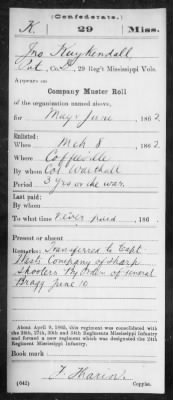 (Confederate.)
K. 29 Miss.
Jno Kuykendall
Co. D, 29 Reg't Mississippi Vols.
Appears on
Company Muster Roll
of the organization named above,
for May & June, 1862
Enlisted:
When Mch 8, 1862
Where Coffeeville
By whom Col Walthall
Period 3 yrs or the war.
Last paid:
By whom
To what time never paid, 186 .
Present or absent
Remarks: Transferred to Capt
Wests Company of Sharp
Shooters By Order of General
Bragg June 10
About April 9, 1865, this regiment was consolidated with
the 24th, 27th, 30th and 34th Regiments Mississippi Infantry
and formed a new regiment which was designated the 24th
Regiment Mississippi Infantry.
Book mark:
(642) Copyist.